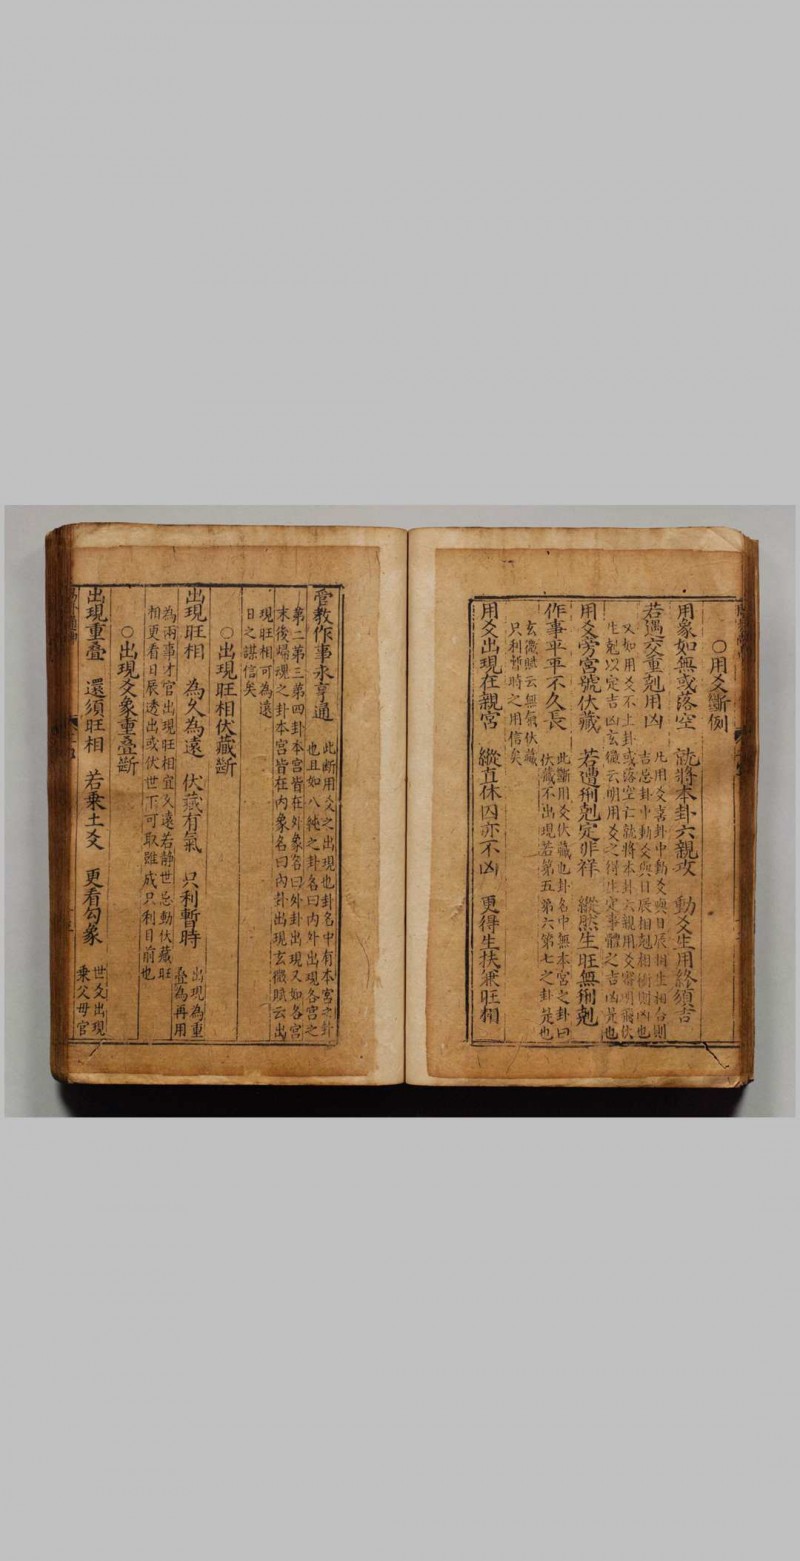 ○用爻斷例
用象如無或落空 就將本卦六親攻 動爻生用終須吉
若遇交重剋用凶
凡用爻喜卦中動爻與日辰相生相合則
吉忌卦中動爻與日辰相剋相衝則凶也
又如用爻不上卦或落空亡就將本卦六親用爻審明需伏
生剋以定吉凶玄微云明用爻之得生定事體之吉凶是也
用爻旁宮號伏藏 若遭刑剋定非祥 縱然生旺無刑剋
作事平平不久長
此斷用爻伏藏也卦名中無本宮之卦曰
伏藏不出現若第五第六第七之卦是也
玄微賦云無氣伏藏
只利暫時之用信矣
用爻出現在親宮 縱直休囚亦不凶 更得生扶兼旺相
管教作事永亨通
此斷用爻之出現也卦名中有本宮之卦
也且如八純之卦名曰內外出現各宮之
第二第三第四卦本宮皆在外象名曰外卦出現又如各宮
末後歸魂之卦本宮皆在內象名曰內卦出現玄微賦云出
現旺相可為遠
日之謀信矣
○出現旺相伏藏斷
出現旺相 為久為遠 伏藏有氣 只利暫時
出現為重
疊為再用
為兩事才官出現旺相宜久遠若靜世忌動伏藏旺
相更看日辰透出或伏世下可取雖成只利目前也
○出現爻象重疊斷
出現重疊 還須旺相 若乘土爻 更看勾象
世爻出現
乘父母官